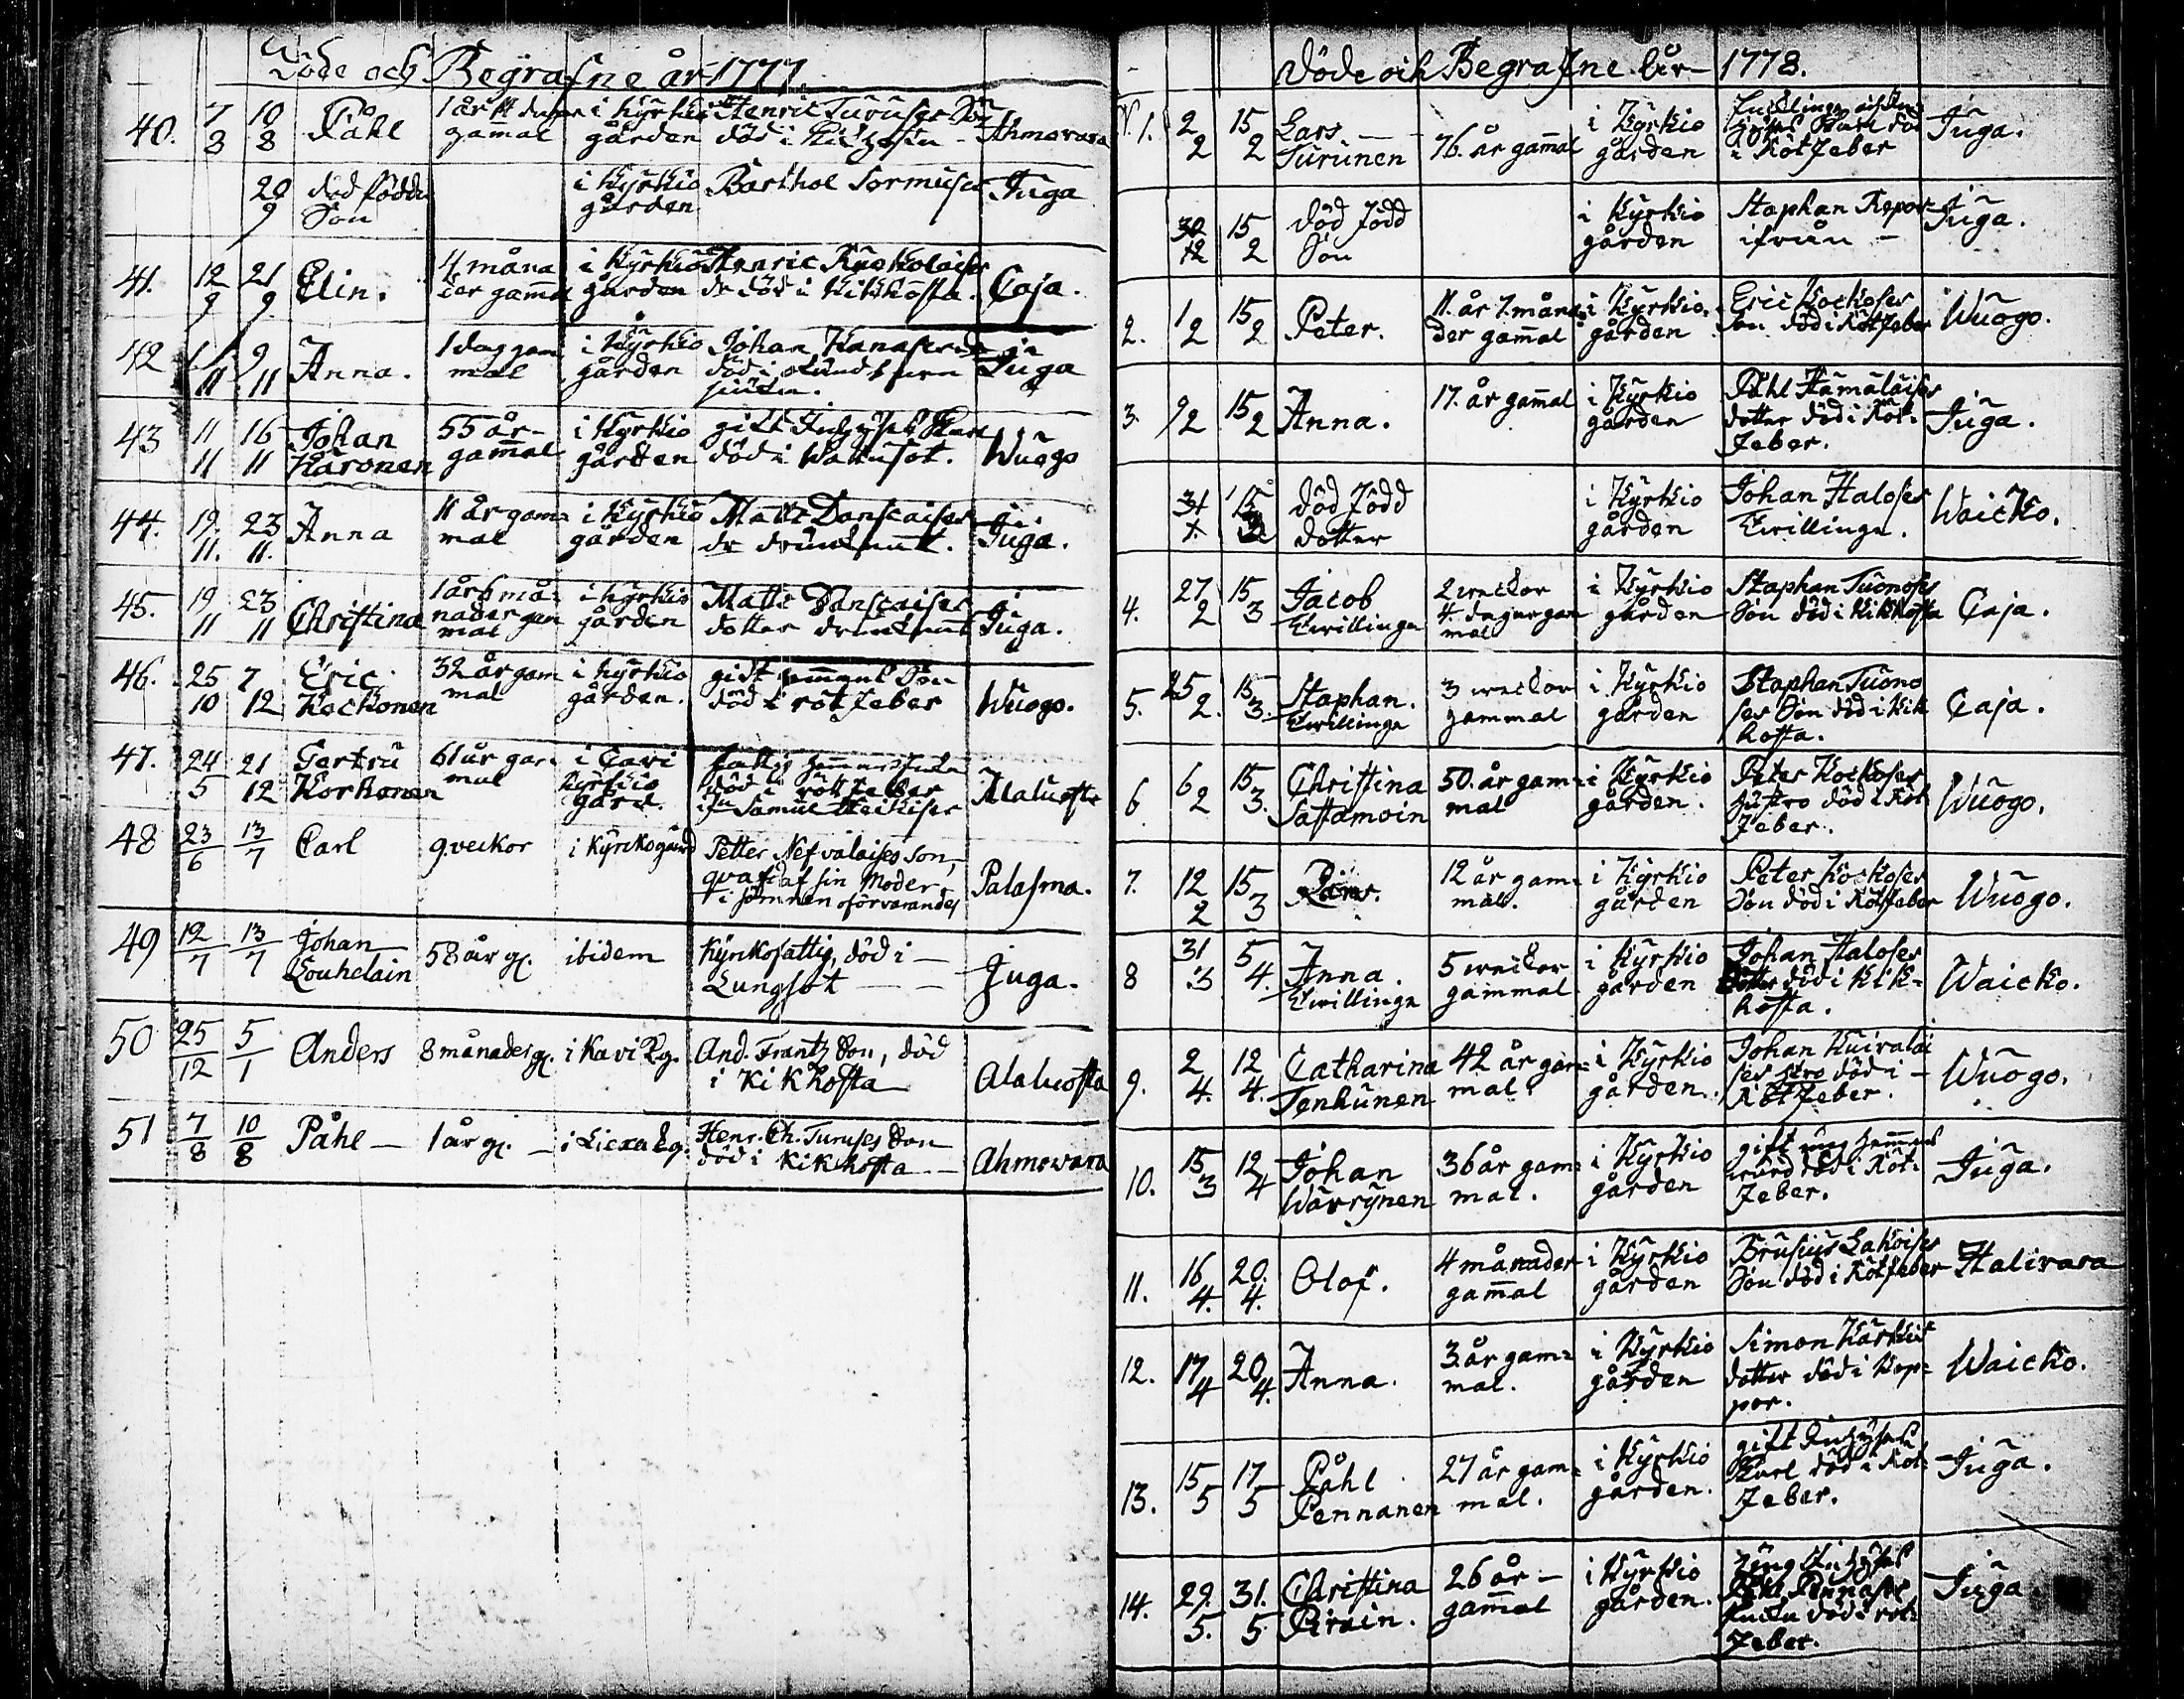 Döde och Begrafne år 1777.
40. 7/8 10/8 Påhl 1 år gamal i Kyrkio gården Henric Turuses Son död i Ahmovara
20/9 död födde Son i Kyrkio gården Barthol Sormuses Juga
41. 12/9 21/9 Elin. 4 måna der gammal i Kyrkio gården Henric Ruokolaises dr död i Kikhosta. Caja.
42 1/11 9/11 Anna. 1 dag gam mal i Kyrkio gården Johan Kanases dr död i Juga
43 11/11 16/11 Johan Karonen 55 år gammal i Kyrkio gården gift Karl död i Wattusot. Wuogo
44. 19/11. 23/11. Anna 11 år gam= mal i Kyrkio gården Matts Danscaises dr drunknat. Juga.
45. 19/11 23/11 Christina 1 år 6 må= nader gam mal i Kyrkio gården Matts Danscaises dotter drunknat Juga.
46. 25/10 7/12 Eric Kockonen 32 år gam mal i Kyrkio gården. gift död i rötfeber Wuogo.
47. 24/5 21/12 Gertru Korhonen 61 år gam mal i Cavi Kyrkio gård. död i rötfeber Samuel Heckises Alaluosta
48 23/6 13/7 Carl 9. veckor i Kyrckogård Petter Nefvalaises Son, qvafd af sin Moder, i sömnen oförvarandes Palasma.
49 12/7 13/7 Johan Louhelain 58 år gl. ibidem Kyrkofattig, död i — Lungsot — — Juga.
50 25/12 5/1 Anders 8 månader gl. i Kavi Kg. And. Frantz Son, död i Kikhosta Alaluosta
51 7/8 10/8 Påhl — 1 år gl. — i Liexa Kg. Henr. Ch. Turuses Son död i Kikhosta — Ahmovara
Döde och Begrafne år 1778.
N. 1. 2/2 15/2 Lars Turunen 76. år gammal i Kyrkio gården död i Rötfeber Juga.
30/12 15/2 död född Son i Kyrkio gården Staphan Juga.
2. 1/2 15/2 Peter. 11. år 7. måna= der gammal i Kyrkio. gården Eric Kockoses Son död i Rötfeber Wuogo.
3. 9/2 15/2 Anna. 17. år gammal i Kyrkio gården Påhl Hämäläises dotter död i Röt= feber. Juga.
31/1. 15/3 död född dotter i Kyrkio gården Johan Haloses Twillinge. Waicko.
4. 27/2 15/3 Jacob Twillinge 2 weckor 4. dagar gam mal i Kyrkio gården Staphan Tuonoses Son död i Kikhosta Caja.
5. 25/2. 15/3. Staphan. Twillinge 3 weckor gammal i Kyrkio gården Staphan Tuono ses Son död i Kik hosta. Caja.
6 6/2 15/3. Christina Sattamoin 50. år gam= mal i Kyrkio gården. Peter Kockoses hustro död i Röt feber. Wuogo.
7. 12/2 15/3 Lars. 12 år gam= mal. i Kyrkio gården Peter Kockoses Son död i Rötfeber Wuogo.
8 31/3 5/4. Anna. Twillinge 5 weckor gammal i Kyrkio gården Johan Haloses dotter död i Kik= hosta. Waicko.
9. 2/4. 12/4. Catharina Tenhunen 42 år gam= mal. i Kyrkio gården. Johan Kuivalai ses stro död i — Rötfeber. Wuogo.
10. 15/3 12/4 Johan Wäyrynen 36 år gam= mal. i Kyrkio gården gift död i Röt= feber. Juga.
11. 16/4. 20./4. Olof. 4 månader gammal i Kyrkio gården Brusius Lakoises Son död i Rötfeber Halivara
12. 17/4 20/4. Anna. 3. år gam= mal. i Kyrkio gården Simon dotter död i Kop= por. Waicko.
13. 15/5 17/5 Påhl Pennanen 27 år gam= mal. i Kyrkio gården. gift Karl död i Röt= feber. Juga.
14. 29./5. 31./5 Christina Pirain. 26 år — gammal i Kyrkio gården. Påhl Pennases död i röt= feber. Juga